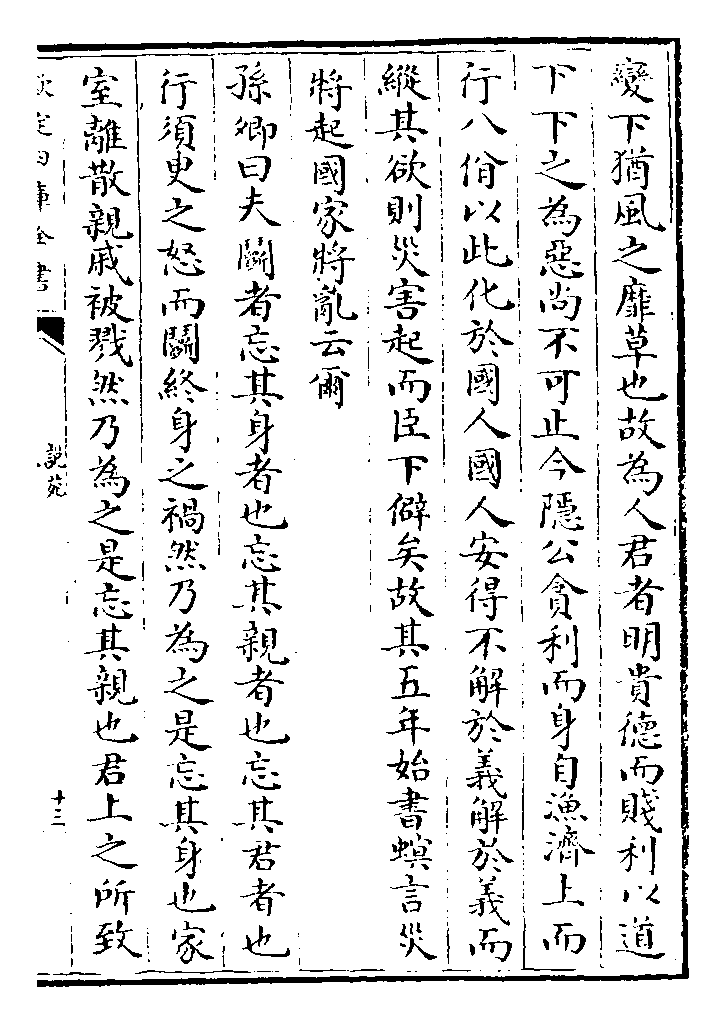 變下猶風之靡草也故為人君者明貴德而賤利以道
下下之為惡尚不可止今隱公貪利而身自漁濟上而
行八佾以此化於國人國人安得不解於義解於義而
縱其欲則災害起而臣下僻矣故其五年始書螟言災
將起國家將亂云爾
孫卿曰夫鬬者忘其身者也忘其親者也忘其君者也
行須臾之怒而鬬終身之禍然乃為之是忘其身也家
室離散親戚被戮然乃為之是忘其親也君上之所致
欽定四庫全書
說苑
十三